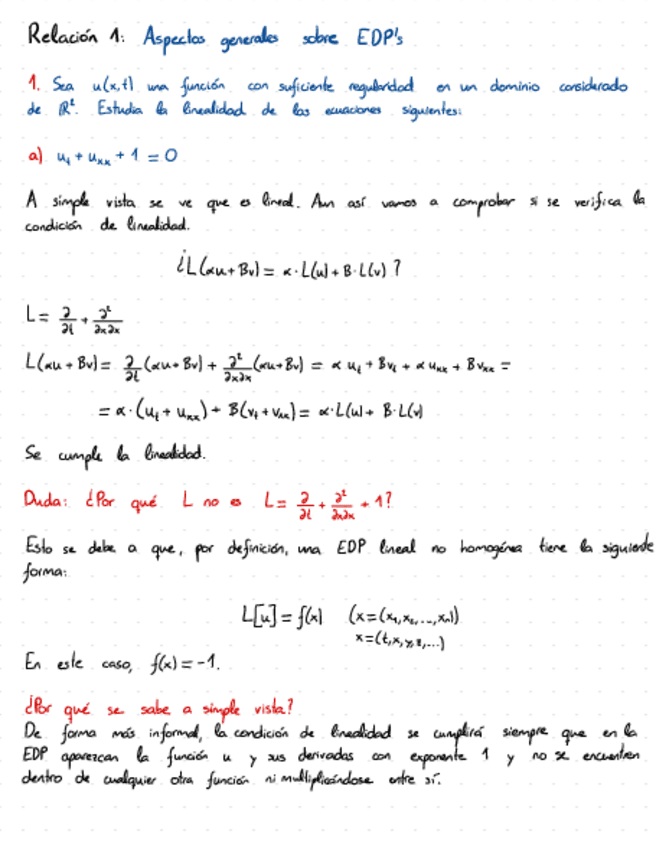 Relación 1: Aspectos generales sobre EDP's
1. Sea u(x,t) una función con suficiente regularidad en un dominio considerado
de ℝ². Estudia la linealidad de las ecuaciones siguientes:
a) uₜ + uₓₓ + 1 = 0
A simple vista se ve que es lineal. Aun así vamos a comprobar si se verifica la
condición de linealidad.
¿L(αu + Bv) = α·L(u) + B·L(v)?
L = ∂/∂t + ∂²/∂x∂x
L(αu + Bv) = ∂/∂t (αu + Bv) + ∂²/∂x∂x (αu + Bv) = α uₜ + Bvₜ + α uₓₓ + B vₓₓ =
= α·(uₜ + uₓₓ) + B(vₜ + vₓₓ) = α·L(u) + B·L(v)
Se cumple la linealidad.
Duda: ¿Por qué L no es L = ∂/∂t + ∂²/∂x∂x + 1?
Esto se debe a que, por definición, una EDP lineal no homogénea tiene la siguiente
forma:
L[u] = f(x) (x = (x₁, x₂, ..., xₙ))
x = (t, x, y, z, ...)
En este caso, f(x) = -1.
¿Por qué se sabe a simple vista?
De forma más informal, la condición de linealidad se cumplirá siempre que en la
EDP aparezcan la función u y sus derivadas con exponente 1 y no se encuentren
dentro de cualquier otra función ni multiplicándose entre sí.